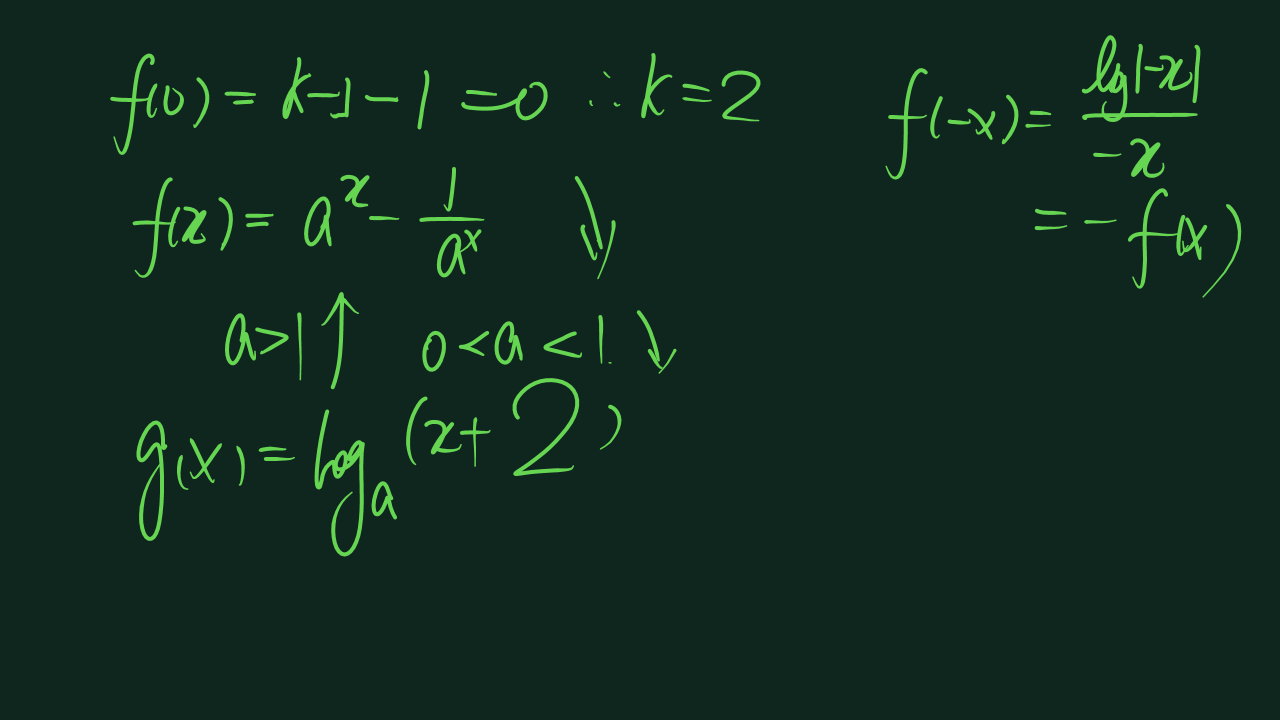 f(0) = k-1-1 = 0 ∴ k = 2
f(x) = a^x - 1/a^x ↓
a>1 ↑ 0<a<1. ↓
g(x) = log_a (x+2)
f(-x) = lg|-x|/-x
= -f(x)